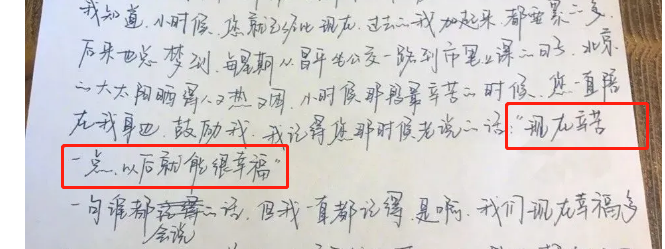 我知道,小时候,您就已经比现在,过去的我加起来,都要累的多,
后来也总梦到,每星期从昌平坐公交一路到市里上课的日子,北京
的大太阳晒得人又热又困,小时候那段最辛苦的时候,您一直陪
在我身边,鼓励我,我记得您那时候老说的话:“现在辛苦
一点,以后就能很幸福”
一句谁都会说的话,但我一直都记得,是啊,我们现在幸福多